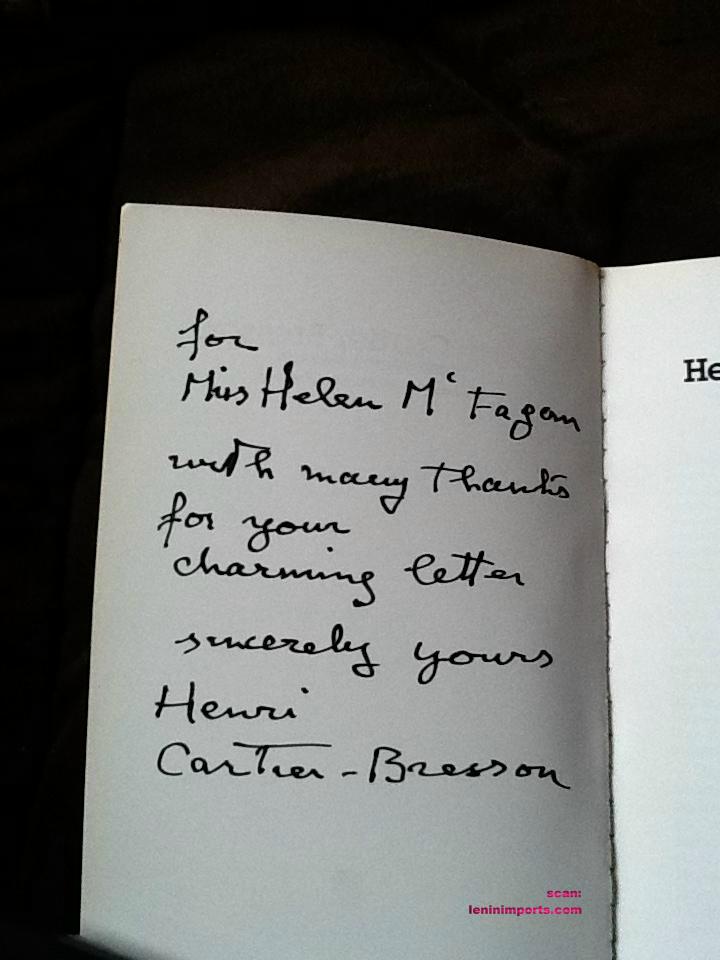 for
Miss Helen Mc Fagan
with many thanks
for your
charming letter
sincerely yours
Henri
Cartier-Bresson
He
scan:
leninimports.com